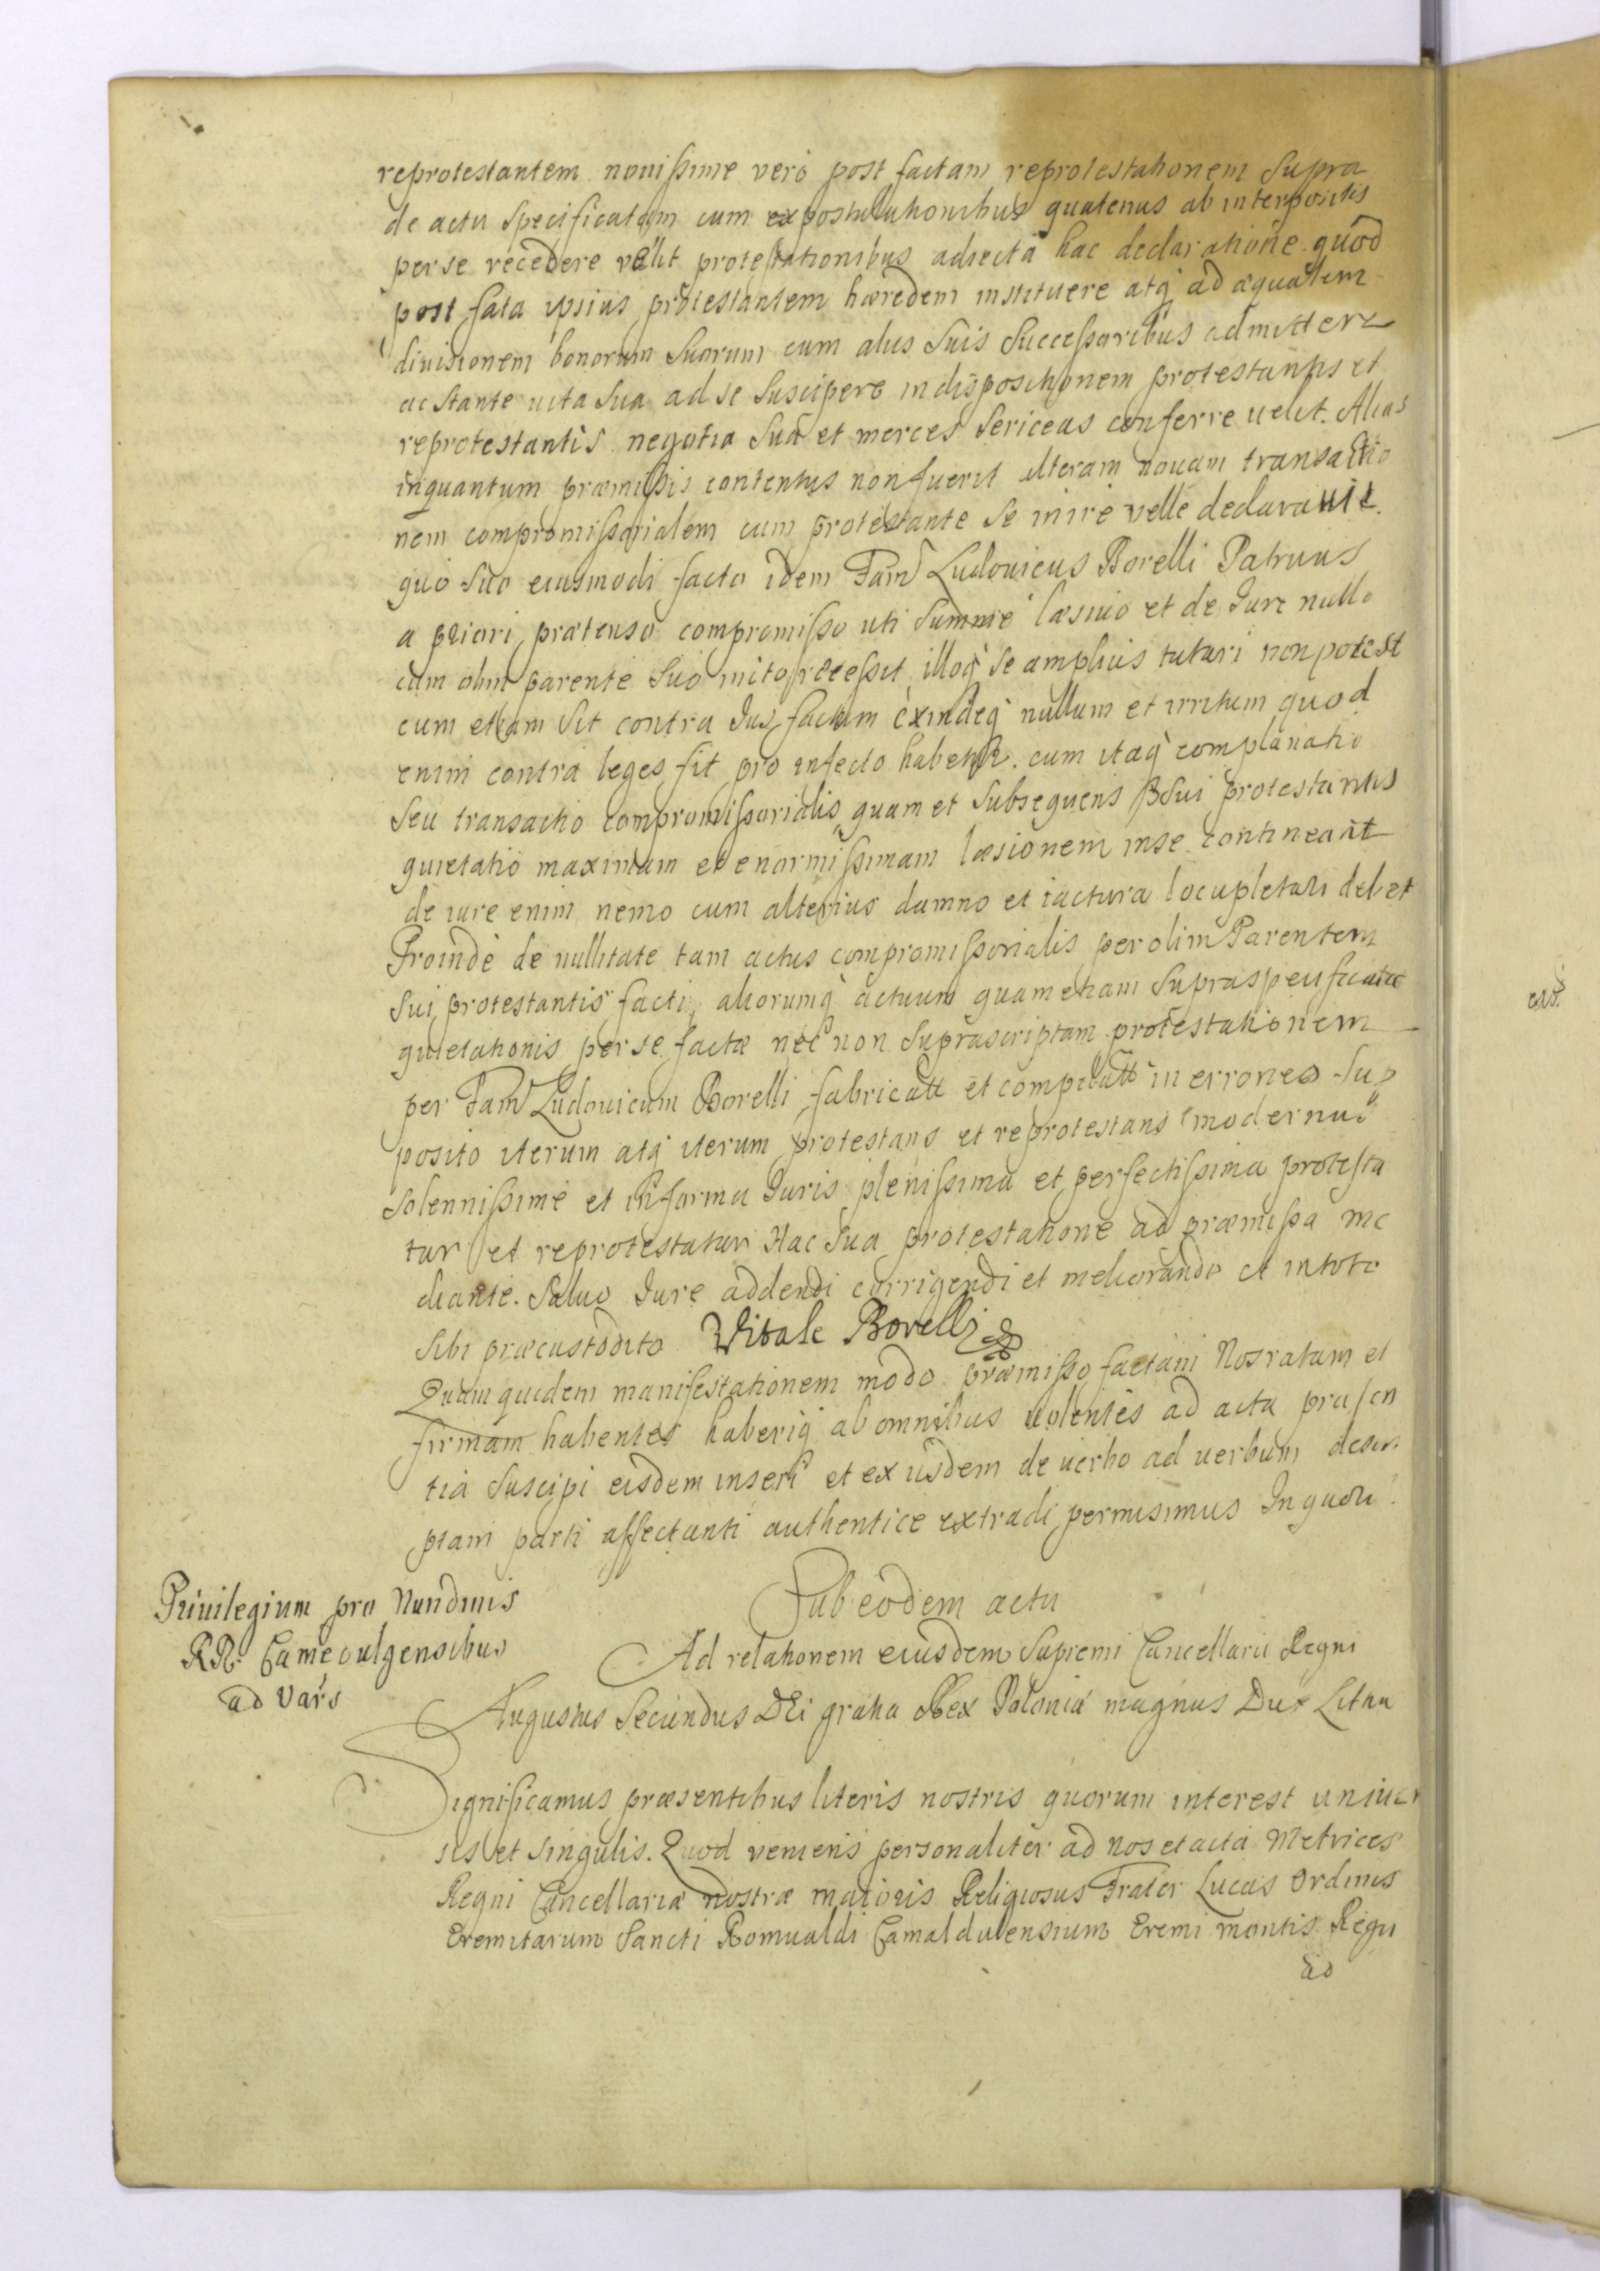 reprotestantem nouissime verò post factam reprotestationem supra
de actu specificatam cum expostulationibus quatenus ab interpositis
per se recedere velit protestationibus adiecta hac declaratione quod
post fata ipsius protestantem hæredem instituere atq̀ ad æqualem
diuisionem bonorum suorum cum alijs suis successoribus admittere
ac stante uita sua ad se suscipere in dispositionem protestantis et
reprotestantis negotia sua et merces sericeas conferre uelit. Alias
inquantum præmissis contentus non fuerit alteram nouam transactio
nem compromissorialem cum protestante se inire velle declarauit.
quo suo eiusmodi facto idem Fam̃ Ludouicus Borelli Patruus
a priori prætenso compromisso uti summè læsiuo et de Jure nullo
cum olim parente suo inito recessit illoq̀ se amplius tutari non potest
cum etiam sit contra Jus factum exindeq̀ nullum et irritum quod
enim contra leges fit pro infecto habetur. cum itaq̀ complanatio
seu transactio compromissorialis quam et subsequens sui protestantis
quietatio maximam et enormissimam læsionem in se contineant
de iure enim nemo cum alterius damno et iactura locupletari debet
Proindè de nullitate tam actus compromissorialis per olim Parentem
sui protestantis facti, aliorumq̀ actuum quam etiam supraspecificatæ
quietationis per se factæ nec non suprascriptam protestationem
per Fam̃ Ludouicum Borelli fabricatt et compilatt in erroneo sup
posito iterum atq̀ iterum protestans et reprotestans modernus
solennissimè et in forma Juris plenissima et perfectissima protesta
tur et reprotestatur Hac sua protestatione ad præmissa me
diante. Saluo Jure addendi corrigendi et meliorandi et in toto
sibi præcustodito Vitale Borelli
Quam quidem manifestationem modo præmisso factam Nos ratam et
firmam habentes haberiq̀ ab omnibus uolentes ad acta præsen
tia suscipi eisdem inseri et ex iisdem de uerbo ad uerbum descri
ptam parti affectanti authenticè extradi permisimus In quoru
Priuilegium pro Nundinis
RR. Cameoulgensibus
ad Vars
Sub eodem actu
Ad relationem eiusdem Supremi Cancellarii Regni
Augustus Secundus DEi gratia Rex Poloniæ magnus Dux Lithu
Significamus præsentibus literis nostris quorum interest uniuer
sis et singulis. Quod veniens personaliter ad nos et acta Metrices
Regni Cancellariæ nostræ maioris Religiosus Frater Lucas Ordinis
Eremitarum Sancti Romualdi Camaldulensium Eremi montis Regii
ad